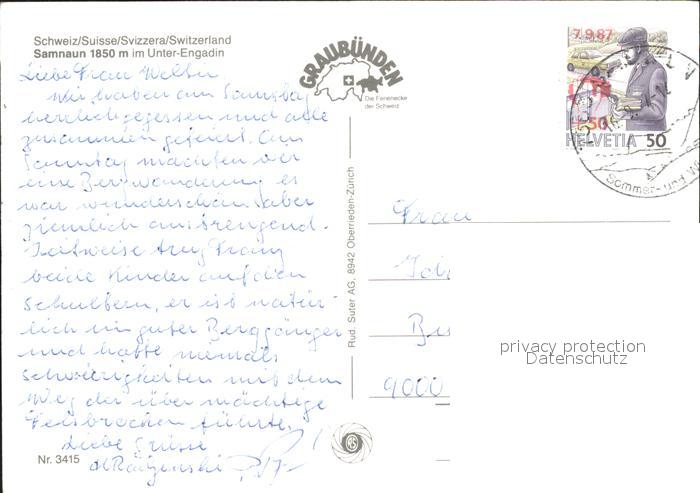 Schweiz/Suisse/Svizzera/Switzerland
Samnaun 1850 m im Unter-Engadin
Liebe Frau
Wir haben am Samstag
herzlich gegessen und alle
zusammen gefeiert. Am
Sonntag machten wir
eine Bergwanderung es
war wunderschön aber
ziemlich anstrengend.
Zeitweise trug Franz
beide Kinder auf den
Schultern, er ist natür-
lich ein guter Berggänger
und hatte niemals
Schwierigkeiten mit dem
Weg der über mächtige
Felsbrocken führte.
Liebe Grüsse
Nr. 3415
GRAUBÜNDEN
Die Ferienecke
der Schweiz
Rud. Suter AG, 8942 Oberrieden-Zürich
7.9.87
HELVETIA 50
Sommer- und
Frau
9000
privacy protection
Datenschutz